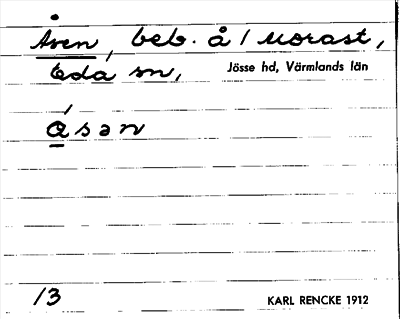 Åsen, beb. å / Morast,
Eda sn, Jösse hd, Värmlands län
ásan
13 KARL RENCKE 1912